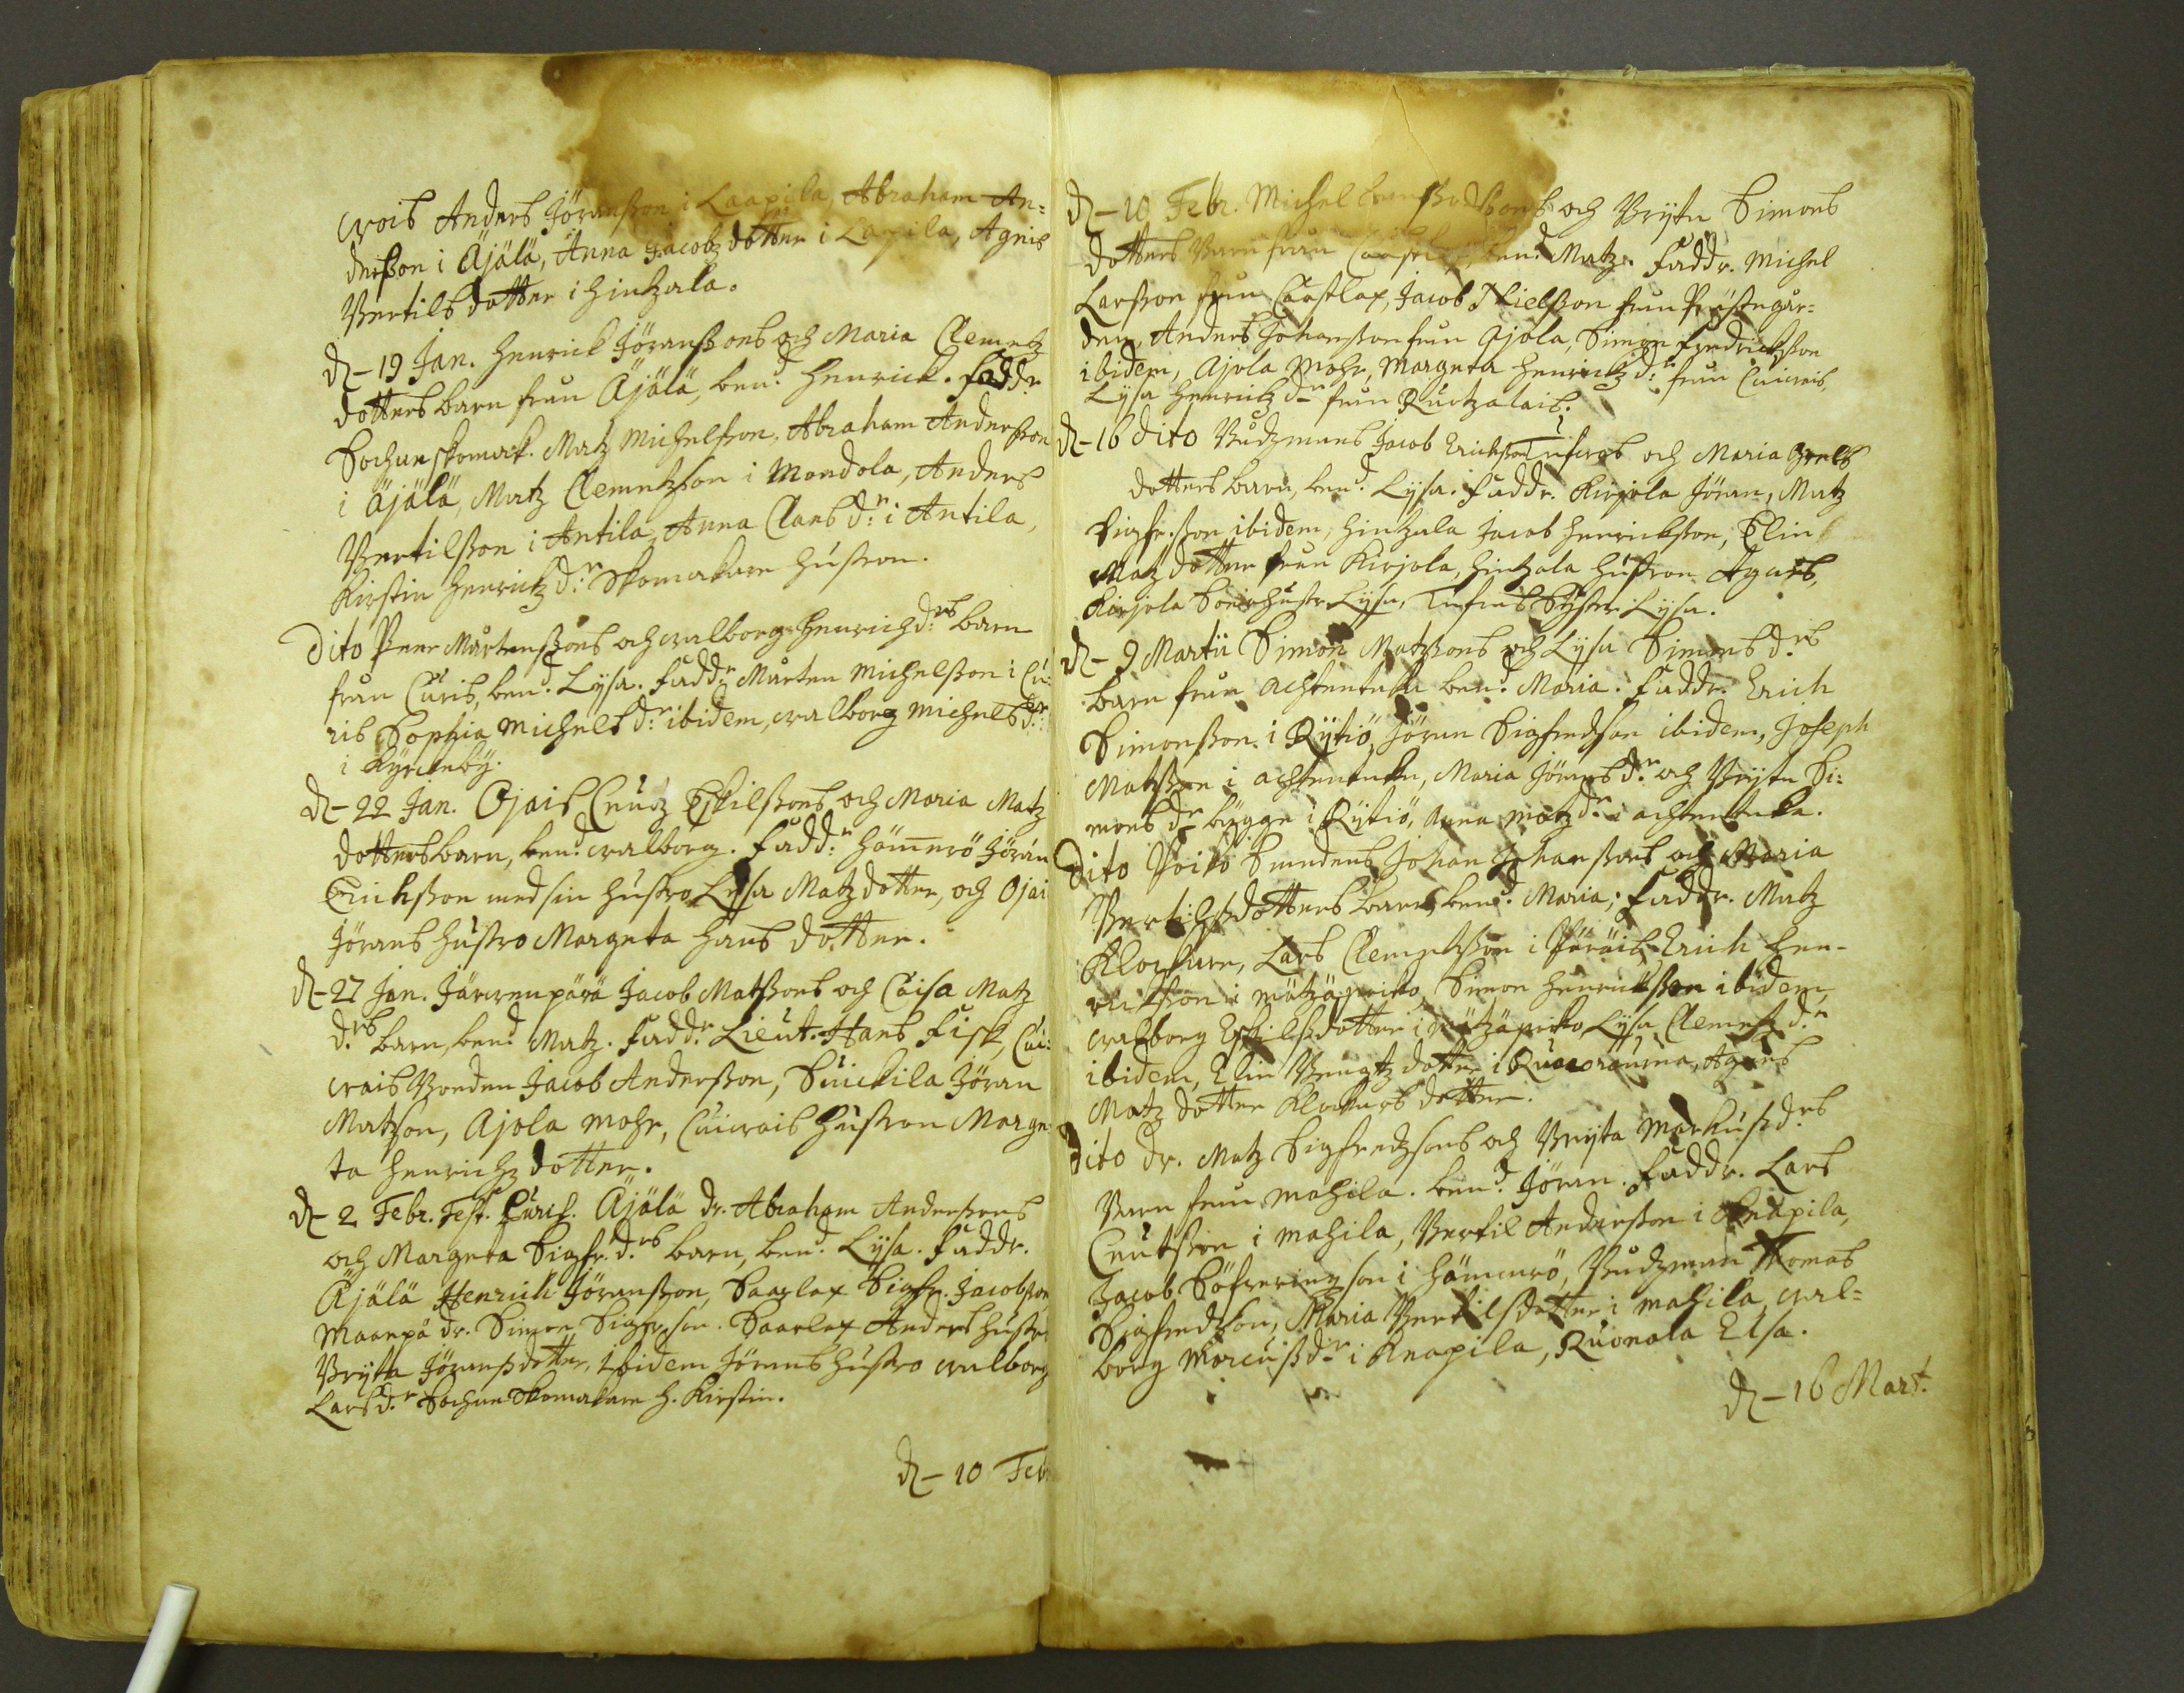 wois Anders Jöransson i Laapila, Abraham An=
dersson i Äjälä, Anna Jacobz dotter i Laapila, Agnis
Bertils dotter i Hintzala.
d. 19 Jan. Henrick Jöranssons och Maria Clemetz
dotters barn från Äjälä, ben.d Henrick. Fadd.r
Sochnskomak. Matz Michelsson, Abraham Andersson
i Äjälä, Matz Clemetzson i Mondola, Anders
Bertilsson i Antila, Anna Clas d.r i Antila,
Kirstin Henrickz d.r Skomakare hustron.
Dito Peer Mårtenssons och Walborg Henrichd.rs barn
från Curis, ben.d Lysa. Fadd.r Mårten Michelsson i Cu=
ris Sophia Michels d.r ibidem, Walborg Michels d.r
i Kyrckeby.
d. 22 Jan. Ojais Cnutz Eskilssons och Maria Matz
dotters barn, ben.d Walborg. Fadd.r Hömerö Jöran
Erichsson med sin hustro Lysa Matzdotter, och Ojai
Jörans hustro Margeta Hans dotter.
d. 27 Jan. Järwenpärä Jacob Matssons och Caisa Matz
d.rs barn, ben.d Matz. Fadd.r Lieut. Hans Fisk, Cui=
wais Bonden Jacob Andersson, Suickila Jöran
Matzson, Ajola Mohr, Cuiwais hustron Marge=
ta Henrichz dotter.
d. 2 Febr. Fest. Purif. Äjälä dr. Abraham Anderssons
och Margeta Sigfr. d.rs barn, ben.d Lysa. Faddr.
Äjälä Henrich Jöransson, Saarlax Sigfr. Jacobson
Maanpä dr. Simon Sigfr. son. Saarlax Anders hustr.
Bryta Jöransdotter, Ibidem Jörans hustro Walborg
Lars d.r Sochne Skomakare h. Kirstin.
d. 10 Feb
d. 10 Febr. Michel Larssons och Bryta Simons
dotters barn från ben.d Matz. Faddr. Michel
Larsson från Caastlax, Jacob Nielsson från Prästegår=
den, Anders Johansson från Ajola, Simon Fredricksson
ibidem, Ajola Mohr, Margeta Henrickz d.r från Cuiwais,
Lysa Henrickz d.r från Ruotzalais.
d. 16 Dito Budzmans Jacob Erichsson och Maria Grels
dotters barn, ben.d Lysa. Faddr. Kirjola Jöran, Matz
Sigfr. sson ibidem, Hintzala Jacob Henricksson, Elin
Matz dotter från Kirjola, Hintzala hustron Agnes,
Kirjola Soirhustr Lysa, Syster Lysa.
d. 9 Martii Simon Matssons och Lysa Simons d.rs
barn från Achtentaka ben.d Maria. Faddr. Erich
Simonsson i Rytiö, Jöran Sigfredson ibidem, Joseph
Matsson i achtentaka, Maria Jörans d.r och Bryta Si=
mons d.r bägge i Rytiö, Anna Matz d.r i achtentaka.
Dito Poiko Smedens Johan Johanssons och Maria
Bertilssdotters barn, ben.d Maria; Faddr. Matz
Klockare, Lars Clemetsson i Päräis, Erich Hen=
ricksson i mätzäpoiko, Simon Henricksson ibidem,
Walborg Eskilsdotter i mätzäpoiko, Lysa Clemetz d.r
ibidem, Elin Bengtz dotter i Ruocorauma, Agnes
Matz dotter Klockars dotter.
Dito Dr. Matz Sigfredzsons och Bryta Markusd.rs
barn från Mahila. ben.d Jöran. Faddr. Lars
Cnutsson i Mahila, Bertil Andersson i Knapila,
Jacob Söfrering son i Hämmerö, Budzman Thomas
Sigfredson, Maria Bertilsdotter i Mahila, Wal=
borg Marcusd.r i Knapila, Ruonala Elsa.
d. 16 Mart.